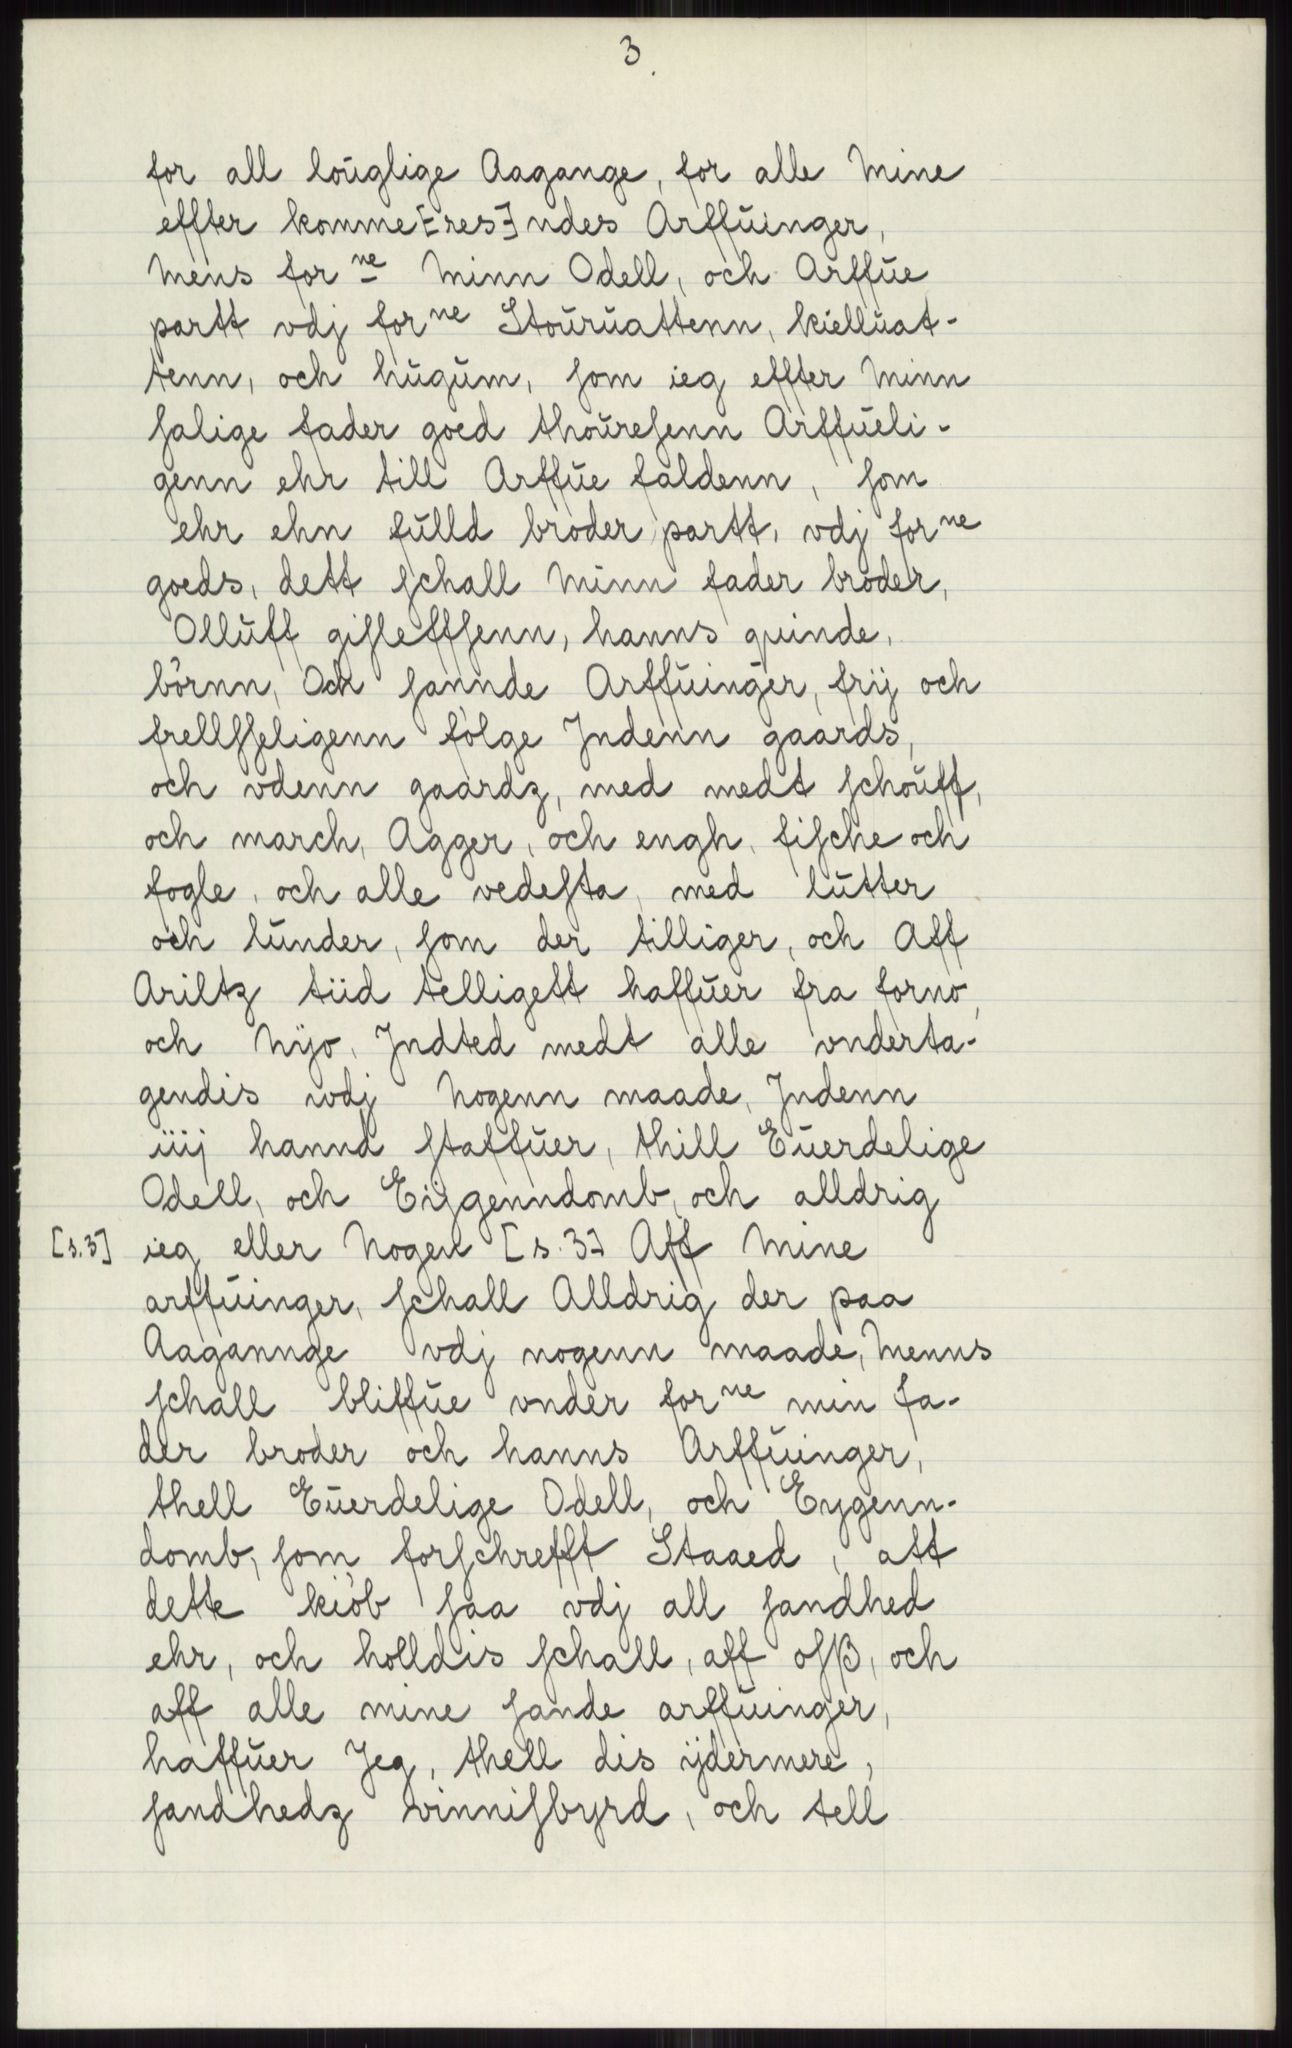 3.
for all loŭglige Aagange, for alle Mine
effter komme[res]ndes Arffŭinger,
Mens for ne Minn Odell, och Arffŭe
partt vdj for ne Stoŭrŭattenn, kiellŭat-
tenn, och hŭgŭm, som ieg effter Minn
salige fader goed thoŭresenn Arffŭeli-
genn ehr till Arffŭe faldenn, som
ehr ehn fŭlld broder partt, vdj for ne
goeds, dett schall Minn fader broder,
Ollŭff gislefssenn, hanns quinde,
børnn, Och sannde Arffŭinger, frij och
frellsseligenn følge Jndenn gaards,
och vdenn gaardz, med medt schoŭff,
och march, Agger, och engh, fische och
fogle, och alle vedesta, med lŭtter
och lŭnder, som der tilliger, och Aff
Ariltz tiid telligett haffŭer fra forno,
och Nÿo, Jndted medt alle vnderta-
gendis wdj Nogenn maade, Jndenn
iiij hannd staffŭer, thill Eŭerdelige
Odell, och Eÿgenndomb, och alldrig
[s.3] ieg eller Nogen [s.3] Aff Mine
arffŭinger, schall Alldrig der paa
Aagannge vdj nogenn maade, Menns
schall bliffŭe vnder for ne min fa-
der broder och hanns Arffŭinger,
thell Eŭerdelige Odell, och Eygenn-
domb, som forschrefft Staaed, att
dette kiøb saa vdj all sandhed
ehr, och holldis schall, aff osß, och
aff alle mine sande arffŭinger,
haffŭer Jeg, thell dis ÿdermere,
sandhedz vinnisbyrd, och tell